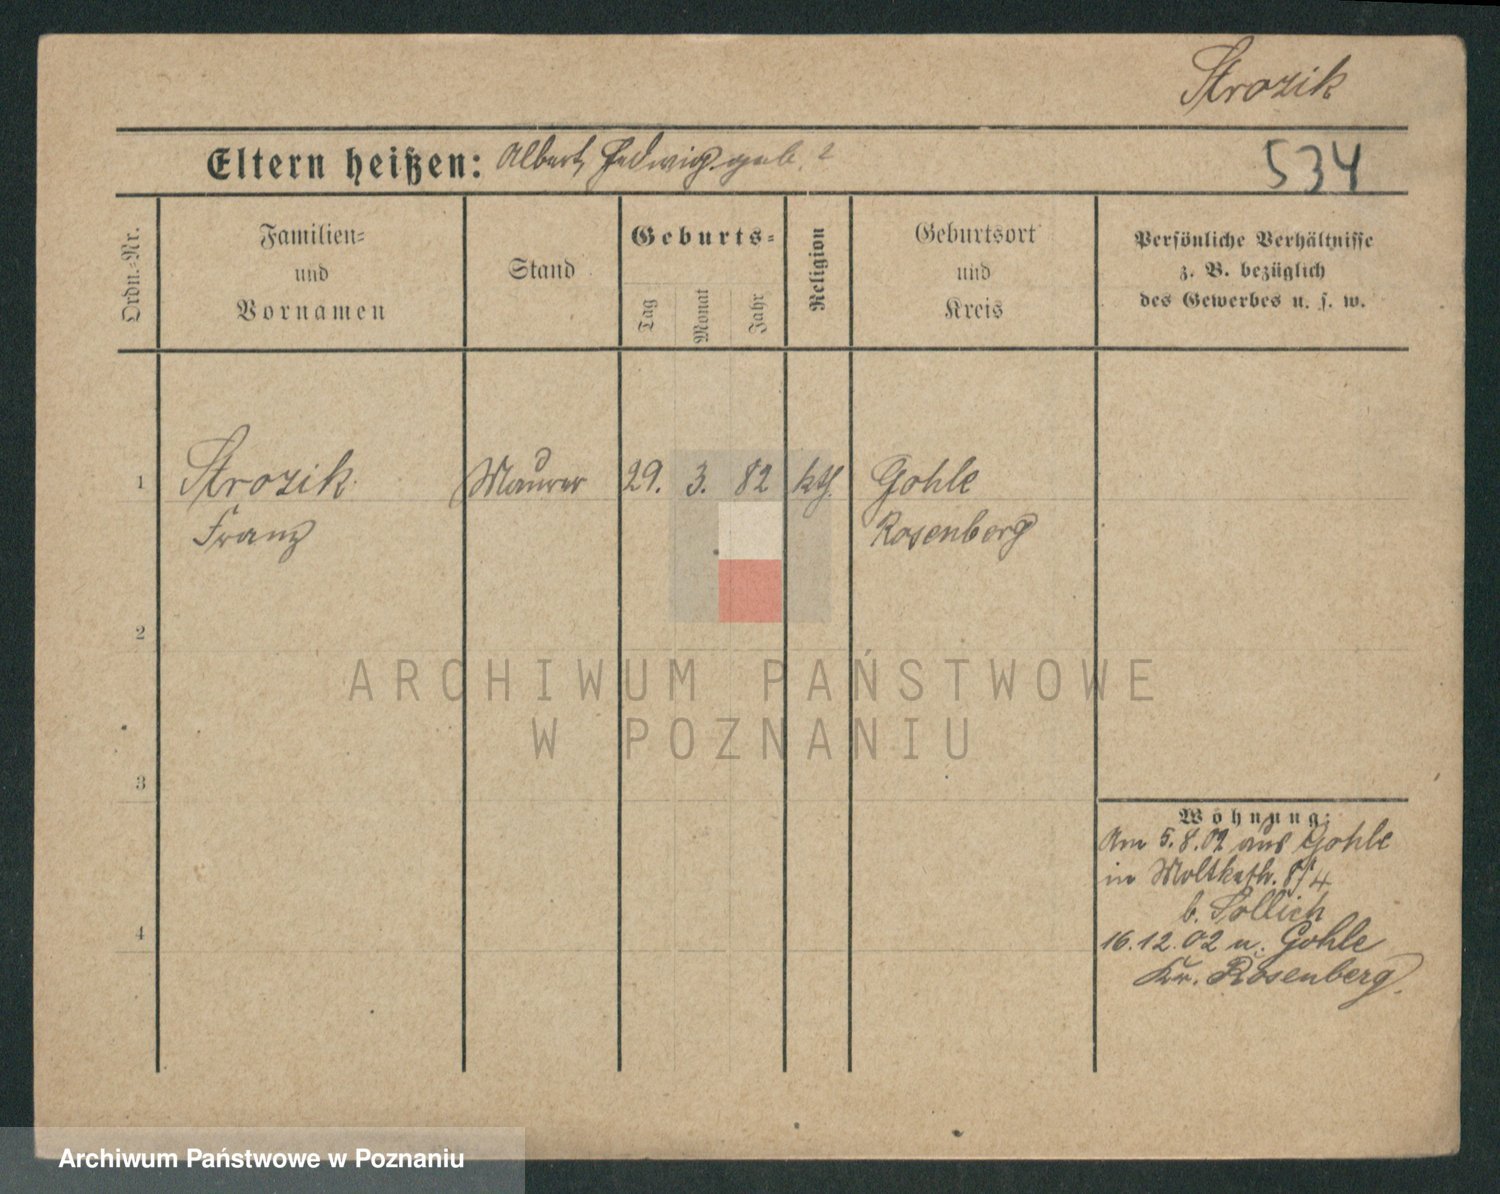 Strozik
Eltern heißen: Albert, Hedwig geb. ?
534
Ordn.-Nr.
Familien-
und
Vornamen
Stand
Geburts-
Tag
Monat
Jahr
Religion
Geburtsort
und
Kreis
Persönliche Verhältnisse
z. B. bezüglich
des Gewerbes u. s. w.
1 Strozik Maurer 29. 3. 82 kth. Gohle
Franz Rosenberg
2
ARCHIWUM PAŃSTWOWE
W POZNANIU
3
Wohnung:
Am 5.8.02 aus Gohle
in Moltkestr. 8/4
b. Sollich
4
16.12.02 n. Gohle
Kr. Rosenberg.
Archiwum Państwowe w Poznaniu